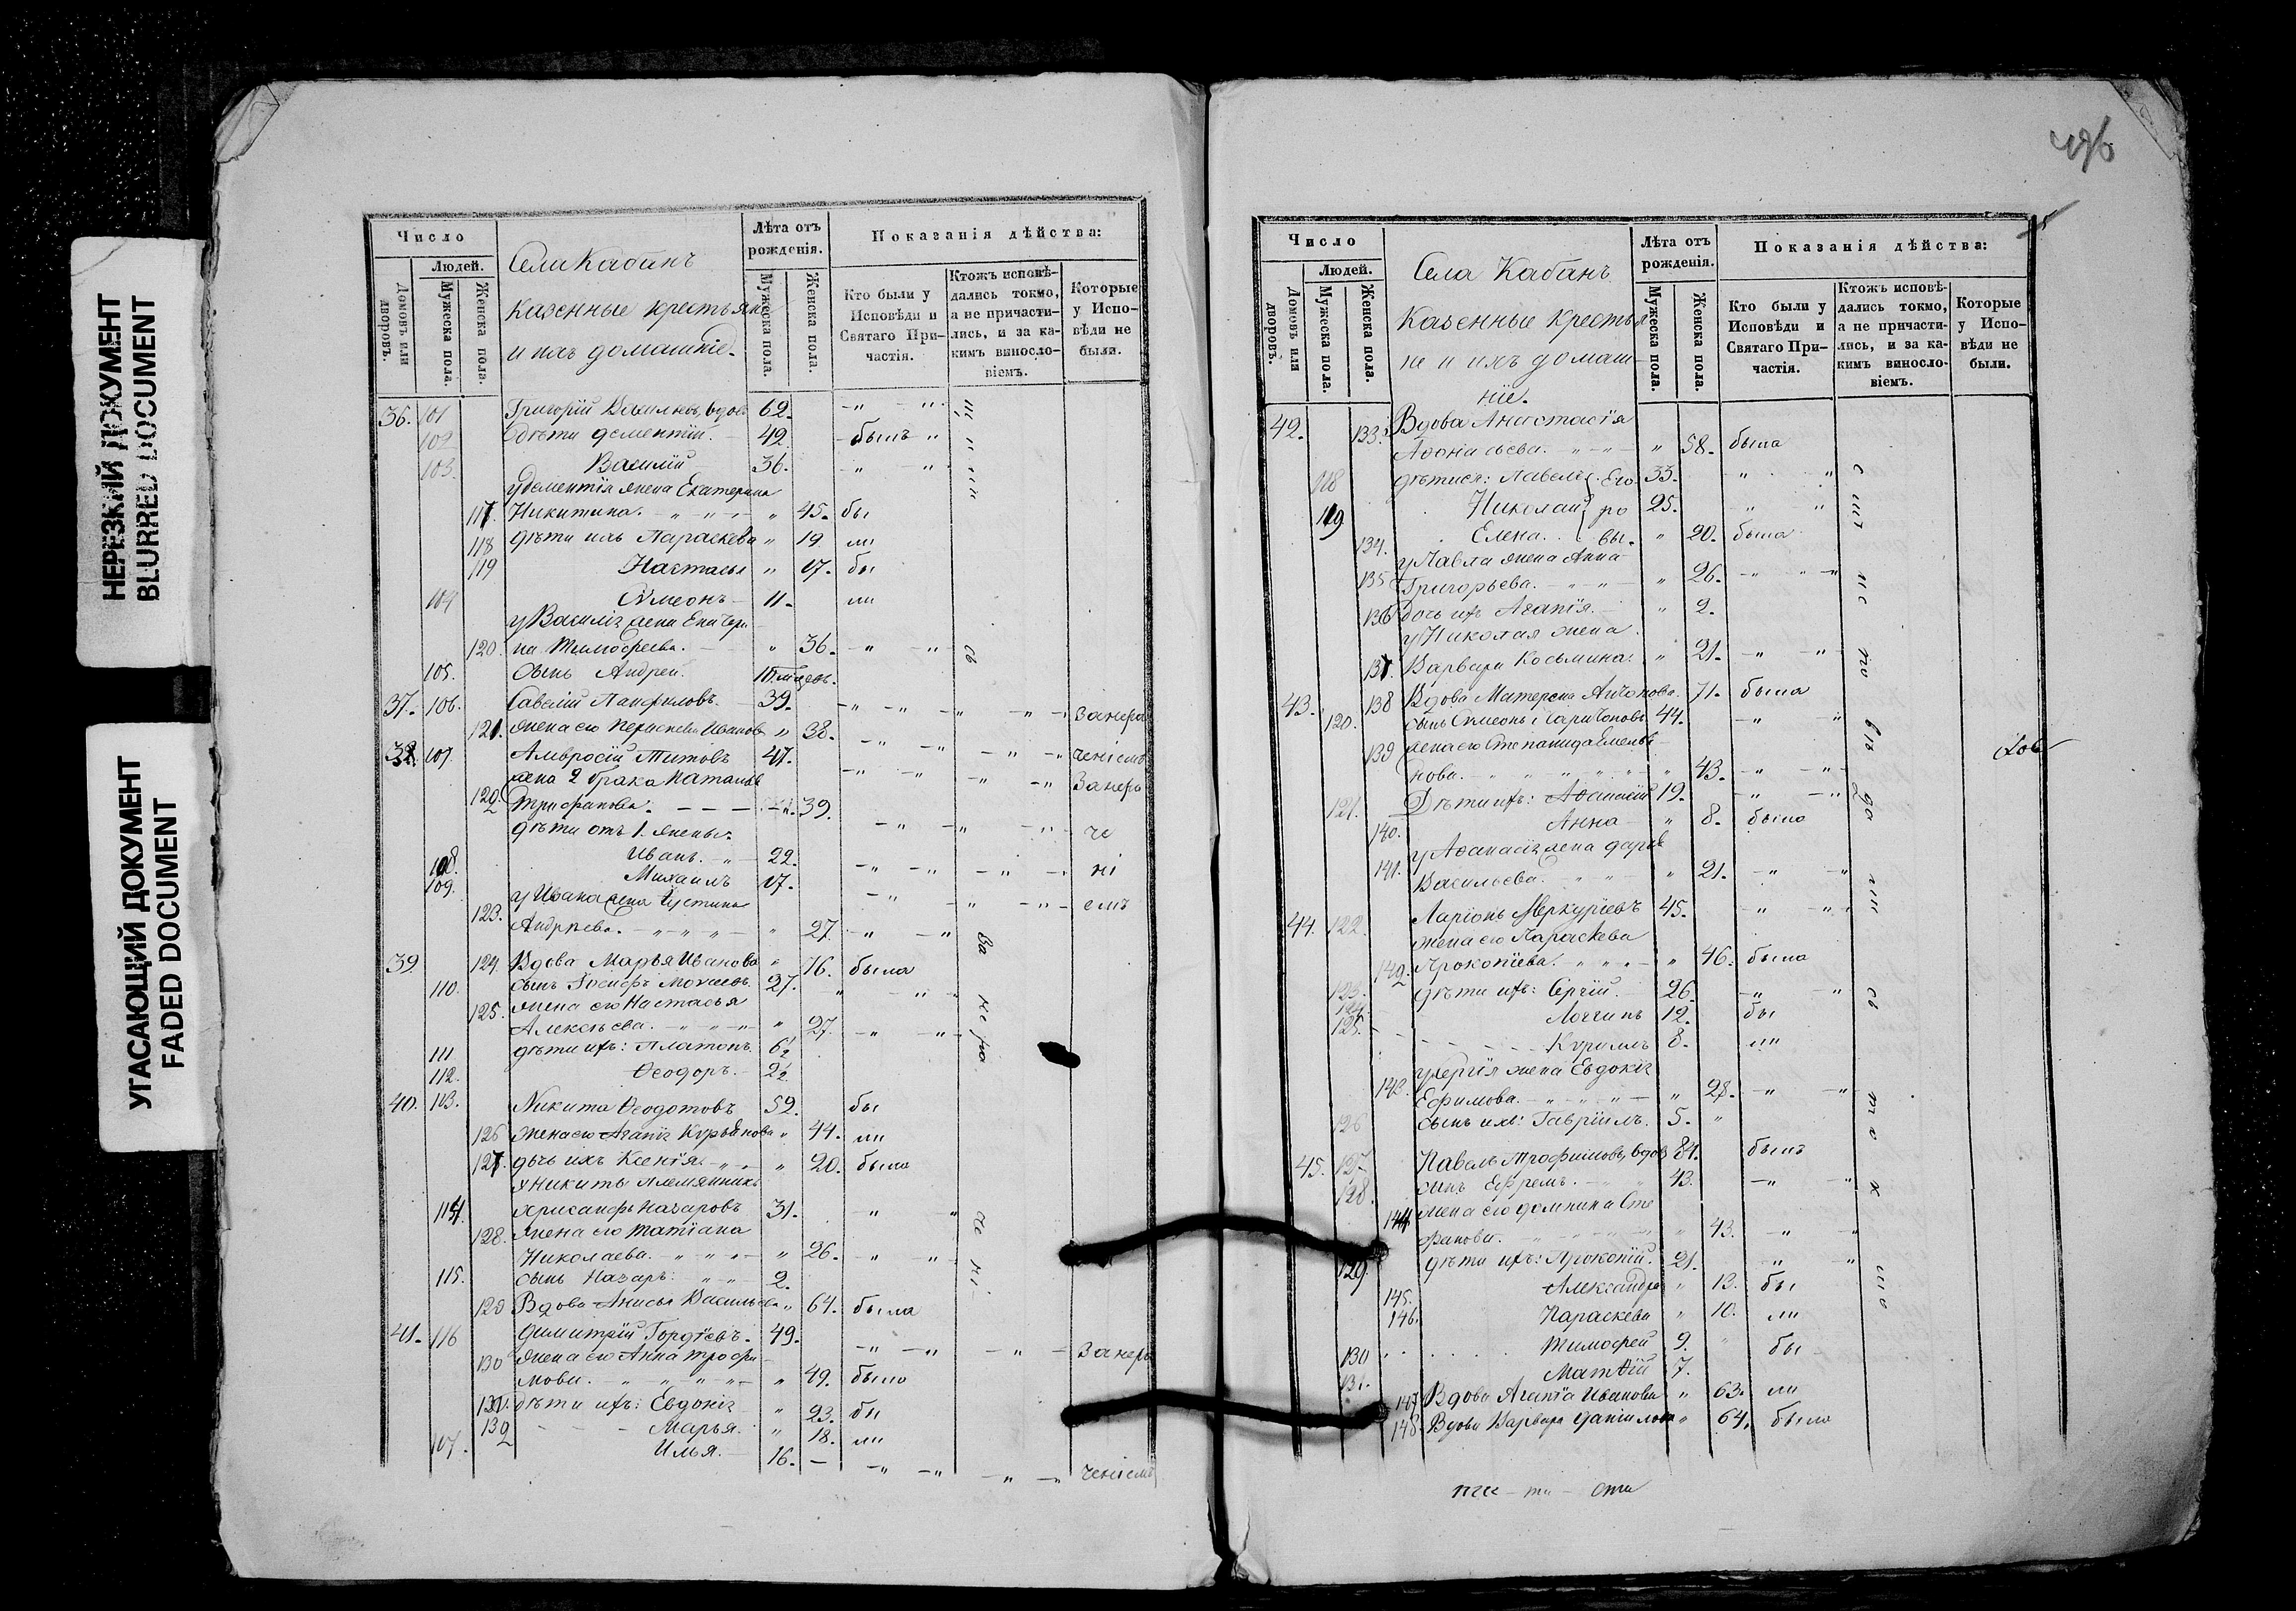 НЕРЕЗКИЙ ДОКУМЕНТ
BLURRED DOCUMENT
УГАСАЮЩИЙ ДОКУМЕНТ
FADED DOCUMENT
Число
Людей.
Домовъ или дворовъ.
Мужеска пола.
Женска пола.
Села Кабанъ
казенные крестьяне
и ихъ домашніе.
Лѣта отъ рожденія.
Мужеска пола.
Женска пола.
Показанія дѣйства:
Кто были у Исповѣди и Святаго Причастія.
Ктожъ исповѣ-
дались токмо,
а не причасти-
лись, и за ка-
кимъ винносло-
віемъ.
Которые
у Испо-
вѣди не
были.
36. 101 Григорій Васильевъ, вдов 62.
102 Дѣти Дементій. 42 былъ
103. Василій 36.
у Дементія жена Екатерина
117. Никитина. 45. бы
118 дѣти ихъ Параскева 19 ли
119 Настасья 17. бы
104 Симеонъ 11. ли
у Василія жена Екатери
120. на Тимофеева. 36.
105. Сынъ Андрей.
37. 106. Савелій Панфиловъ. 39.
121. жена его Параскева Иванов 38. Занера
38. 107. Амвросій Титовъ 47. ченіемъ
жена 2 брака Наталья Занера
122. Трифонова. 39.
дѣти отъ 1. жены: че
108. Иванъ. 22. ні
109. Михаилъ 17.
у Ивана жена Устинья емъ
123. Андреева. 27.
39 124. Вдова Марья Иванова 76. была
110. сынъ Іосифъ Моисеевъ. 27.
125. жена его Настасья
Алексѣева. 27.
111 дѣти ихъ: Платонъ. 6½
112. Ѳеодоръ. 2½
40. 113. Никита Ѳеодотовъ 52. бы
126 жена его Агапія Курьянова 44. ли
127 дочь ихъ Ксенія. 20. была
у Никиты племянникъ
114. Хрисанфъ Назаровъ 31.
128. жена его Татіана
Николаева. 26.
115. сынъ Назаръ 2.
129 Вдова Анисья Васильева 64. была
41. 116 Димитрій Гордѣевъ. 49. Занера
130 жена его Анна Трофи
мова. 49. была
131. дѣти ихъ: Евдокія 23. бы
132 Марья. 18. ли
107. Илья. 16. ченіемъ
Число
Людей.
Домовъ или дворовъ.
Мужеска пола.
Женска пола.
Села Кабанъ
Казенные крестья
не и ихъ домаш
ніе.
Лѣта отъ рожденія.
Мужеска пола.
Женска пола.
Показанія дѣйства:
Кто были у Исповѣди и Святаго Причастія.
Ктожъ исповѣ-
дались токмо,
а не причасти-
лись, и за ка-
кимъ винносло-
віемъ.
Которые
у Испо-
вѣди не
были.
42. 133. Вдова Анастасія
Аѳонасьева. 58. была
118 дѣти ея: Павелъ Его 33.
119 Николай ро 25.
134. Елена. вы. 20. была
у Павла жена Анна
135 Григорьева. 26.
136 Дочь ихъ Агапія. 2.
у Николая жена
137. Варвара Косьмина. 21.
43. 138 Вдова Матрена Антонова. 71. была
120. сынъ Симеонъ Харитоновъ 44.
139 жена его Степанида Семенъ
нова. 43.
121. Дѣти ихъ: Аѳанасій 19.
140. Анна 8. была
у Аѳанасія жена Дарья
141. Васильева. 21.
44. 122. Ларіонъ Меркуріевъ 45.
жена его Параскева
142. Прокопіева. 46. была
123. дѣти ихъ: Сергій. 26.
124. Логгинъ 12. бы
125. Кириллъ 8. ли
у Сергія жена Евдокія
143. Ефимова. 28.
126 сынъ ихъ: Гавріилъ. 5.
45. 127. Павелъ Трофимовъ, вдов 84. былъ
128. сынъ Ефремъ. 43.
144 жена его Домника Сте
фанова. 43.
129. дѣти ихъ: Прокопій. 21.
145. Александра 13. бы
146. Параскева 10. ли
130 Тимофей 9. бы
131. Матѳій 7.
147 Вдова Агапія Иванова 63. ли
148. Вдова Варвара Данилова 64. была